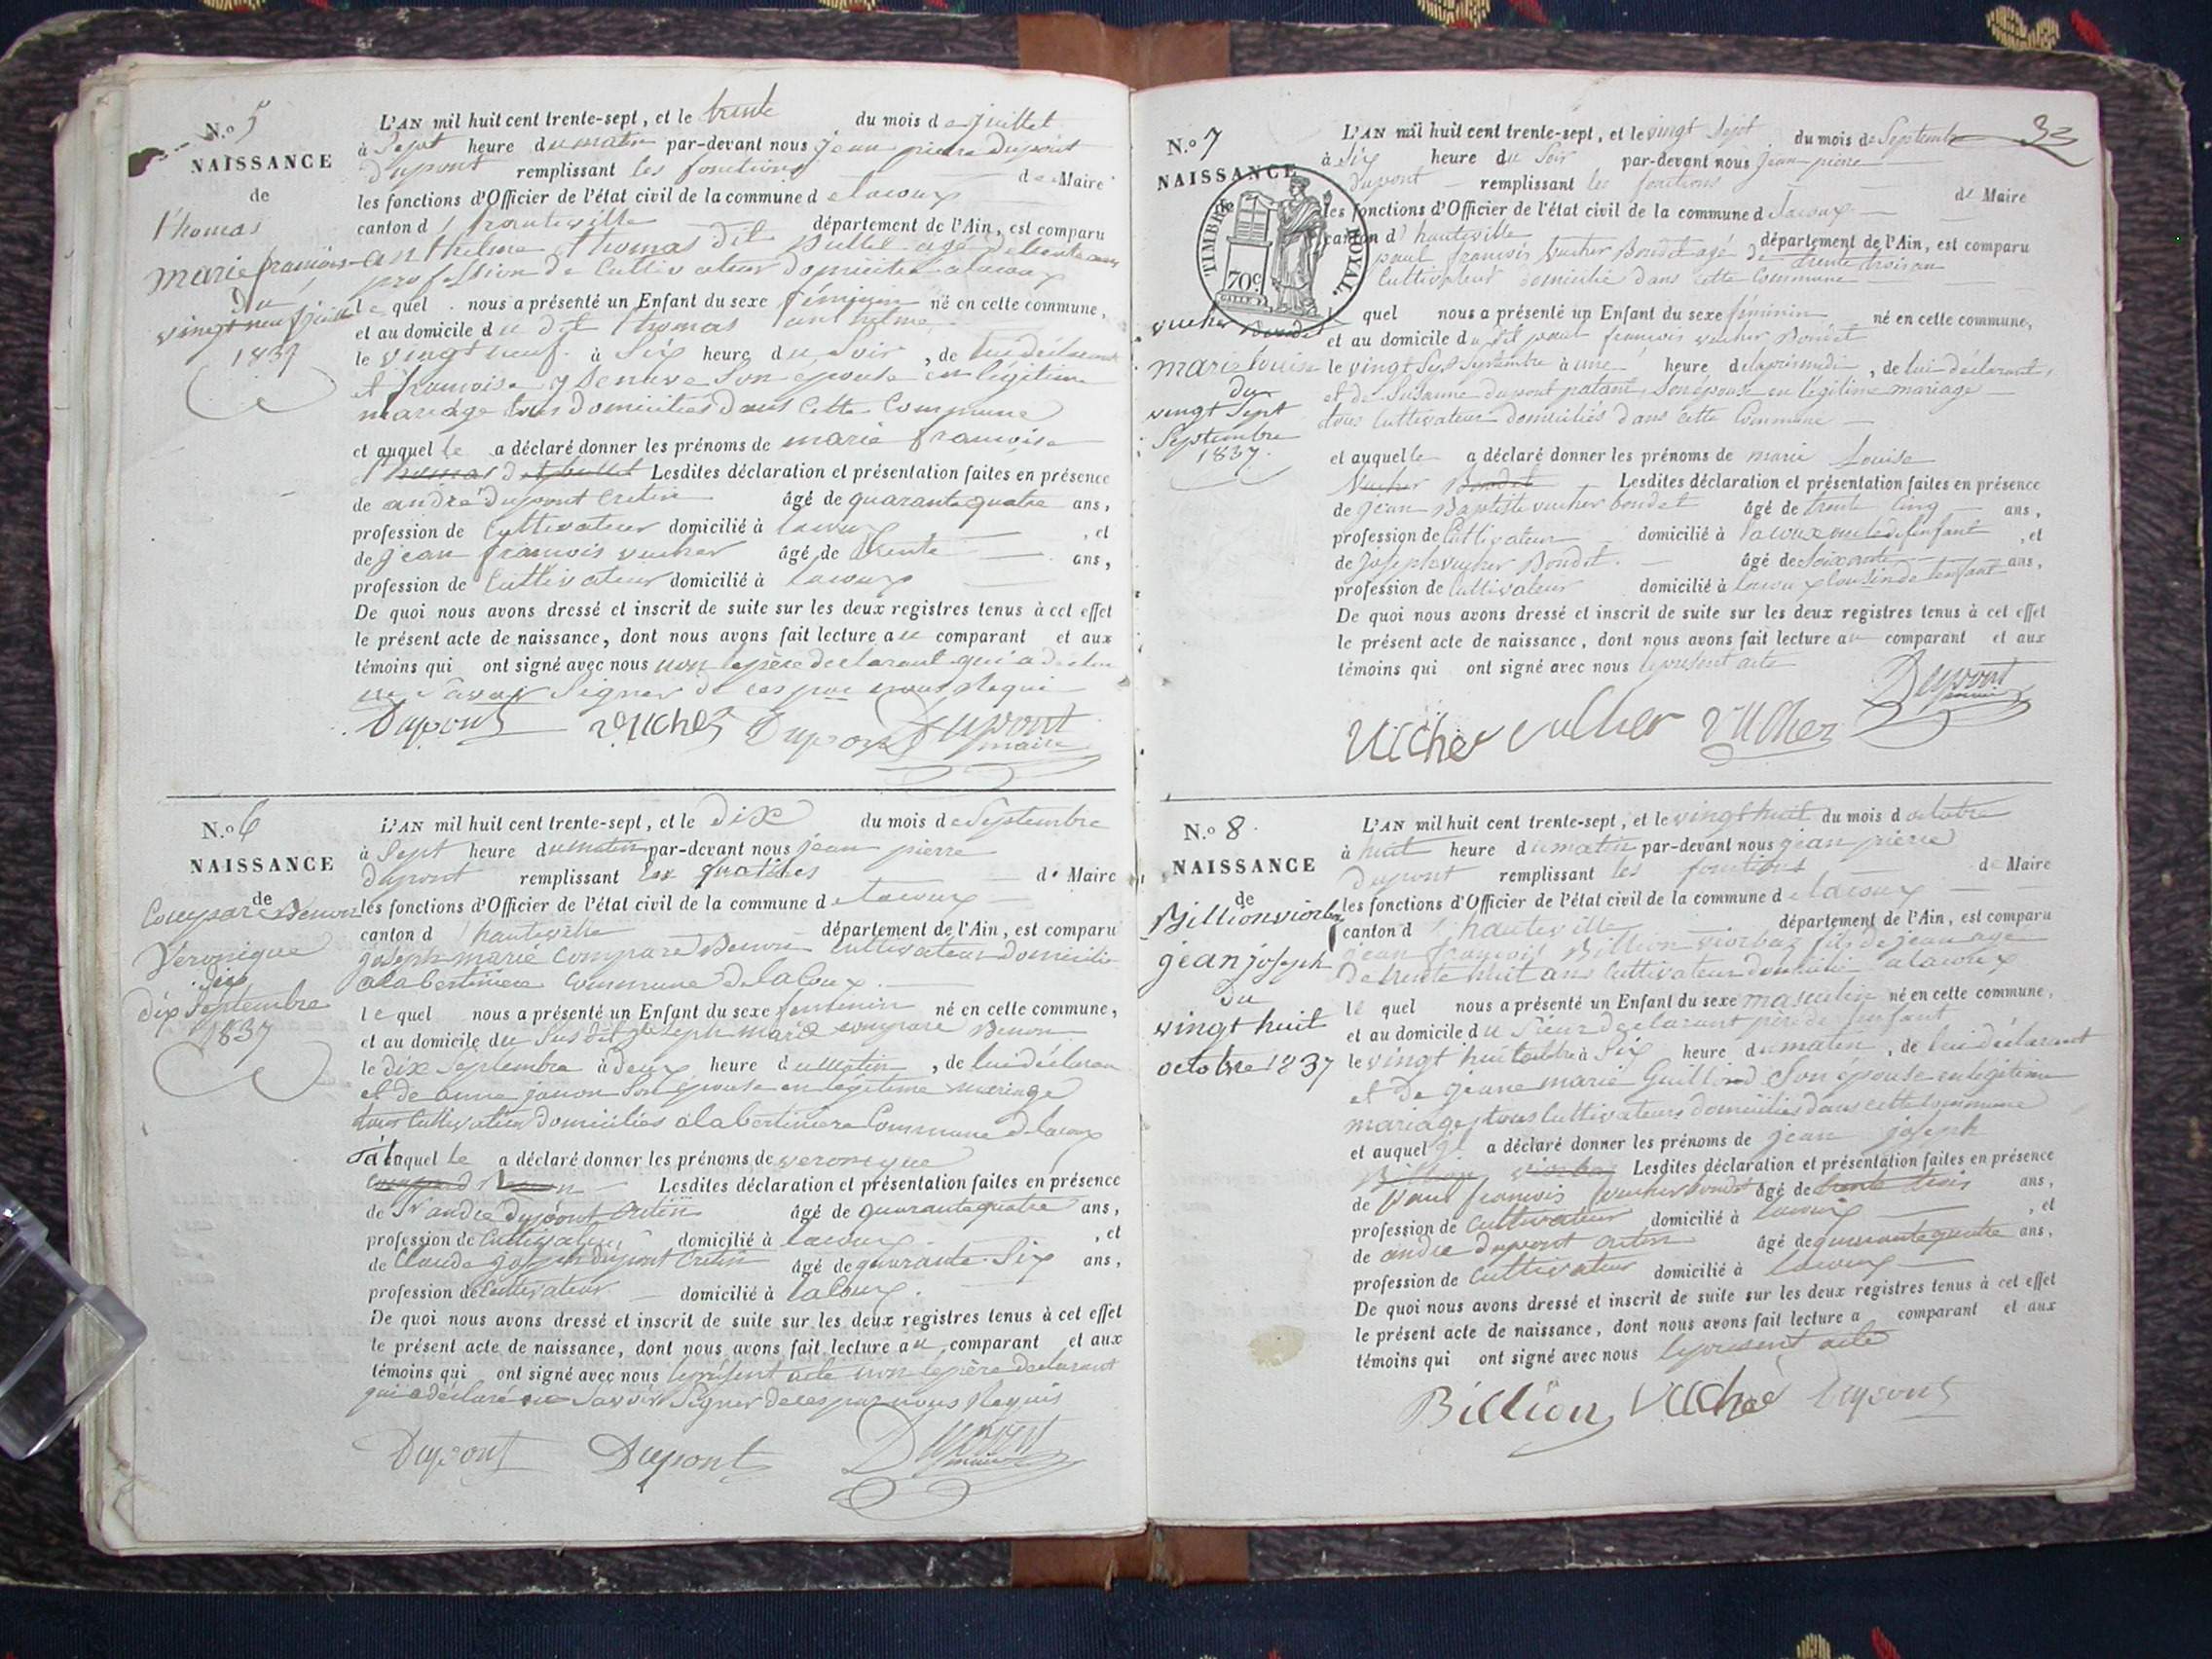 N.o 5
NAISSANCE
de
Thomas
marie françoise
du
vingt neuf juillet
1837
L'AN mil huit cent trente-sept, et le trente du mois de juillet
à Sept heure du matin par-devant nous jean pierre Dupont
Dupont remplissant les fonctions de Maire
les fonctions d'Officier de l'état civil de la commune de lacoux
canton d'hauteville département de l'Ain, est comparu
anthelme thomas dit bullet agé de trente ans
profession de Cultivateur domicilié a lacoux
le quel nous a présenté un Enfant du sexe féminin né en cette commune,
et au domicile du dit thomas anthelme
le vingt neuf à Six heure du Soir, de lui déclarant
et françoise Son épouse en légitime
mariage tous domiciliés dans cette Commune
et auquel le a déclaré donner les prénoms de marie françoise
thomas dit bullet Lesdites déclaration et présentation faites en présence
de andré dupont Cretin âgé de quarante quatre ans,
profession de Cultivateur domicilié à lacoux, et
de jean francois vucher âgé de trente ans,
profession de Cultivateur domicilié à lacoux
De quoi nous avons dressé et inscrit de suite sur les deux registres tenus à cet effet
le présent acte de naissance, dont nous avons fait lecture au comparant et aux
témoins qui ont signé avec nous non le père declarant qui a declaré
ne Savoir Signer de ces par nous Requi
Dupont Vucher Dupont Dupont
maire
N.o 6
NAISSANCE
de
Compare Benon
Véronique
dix Septembre
1837
L'AN mil huit cent trente-sept, et le Dix du mois de Septembre
à Sept heure du matin par-devant nous jean pierre
Dupont remplissant les de Maire
les fonctions d'Officier de l'état civil de la commune de lacoux
canton d'hauteville département de l'Ain, est comparu
joseph marie compare Benon Cultivateur domicilié
a la bertinière Commune de lacoux
le quel nous a présenté un Enfant du sexe feminin né en cette commune,
et au domicile du Susdit joseph marie compare Benon
le dix Septembre à deux heure du matin, de lui déclarant
et de anne janon Son épouse en légitime mariage
tous Cultivateur Domiciliés a la bertiniere Commune de lacoux
a laquel le a déclaré donner les prénoms de veronique
Lesdites déclaration et présentation faites en présence
de Sr andré Dupont Cretin âgé de quarante quatre ans,
profession de Cultivateur domicilié à lacoux, et
de Claude joseph dupont Cretin âgé de quarante Six ans,
profession de cultivateur domicilié à lacoux.
De quoi nous avons dressé et inscrit de suite sur les deux registres tenus à cet effet
le présent acte de naissance, dont nous avons fait lecture au comparant et aux
témoins qui ont signé avec nous le présent acte non le père declarant
qui a déclaré ne Savoir Signer de ces par nous Requis
Dupont Dupont Dupont
maire
32
N.o 7
NAISSANCE
TIMBRE ROYAL.
70c
vucher Bondet
marie louise
du
vingt Sept
Septembre
1837.
L'AN mil huit cent trente-sept, et le vingt Sept du mois de Septembre
à Six heure du Soir par-devant nous jean pierre
dupont remplissant les fonctions de Maire
les fonctions d'Officier de l'état civil de la commune de lacoux
canton d'hauteville département de l'Ain, est comparu
paul françois Vucher Bondet agé de trente trois an
Cultivateur domicilié dans cette Commune
quel nous a présenté un Enfant du sexe féminin né en cette commune,
et au domicile du dit paul françois vucher Bondet
le vingt Sept Septembre à une heure de laprèsmidi, de lui déclarant,
et de Susanne dupont patant, Son épouse en légitime mariage
tous Cultivateur domiciliés dans cette Commune
et auquel le a déclaré donner les prénoms de marie Louise
Vucher Bondet Lesdites déclaration et présentation faites en présence
de jean Baptiste vucher bondet âgé de trente cinq ans,
profession de Cultivateur domicilié à lacoux oncle de lenfant, et
de Joseph vucher Bondet. âgé de soixante ans,
profession de Cultivateur domicilié à lacoux Cousin de lenfant
De quoi nous avons dressé et inscrit de suite sur les deux registres tenus à cet effet
le présent acte de naissance, dont nous avons fait lecture au comparant et aux
témoins qui ont signé avec nous le présent acte
Vucher vucher Vucher Dupont
maire
N.o 8.
NAISSANCE
de
Billion viorbaz
jean joseph
du
vingt huit
octobre 1837
L'AN mil huit cent trente-sept, et le vingt huit du mois d'octobre
à huit heure du matin par-devant nous jean pierre
Dupont remplissant les fonctions de Maire
les fonctions d'Officier de l'état civil de la commune de lacoux
canton d'hauteville département de l'Ain, est comparu
jean françois Billion viorbaz fils de jean agé
de trente huit ans Cultivateur domicilié a lacoux
le quel nous a présenté un Enfant du sexe masculin né en cette commune,
et au domicile du Sieur declarant père de lenfant
le vingt huit octobre à Six heure du matin, de lui déclarant
et de jeane marie Guilland Son épouse en légitime
mariage, tous Cultivateurs domiciliés dans cette commune
et auquel a déclaré donner les prénoms de jean joseph
Billion viorbaz Lesdites déclaration et présentation faites en présence
de paul françois vucher bondet âgé de trente trois ans,
profession de Cultivateur domicilié à lacoux, et
de andré dupont cretin âgé de quarante quatre ans,
profession de Cultivateur domicilié à lacoux
De quoi nous avons dressé et inscrit de suite sur les deux registres tenus à cet effet
le présent acte de naissance, dont nous avons fait lecture a comparant et aux
témoins qui ont signé avec nous le present acte
Billion, Vucher Dupont